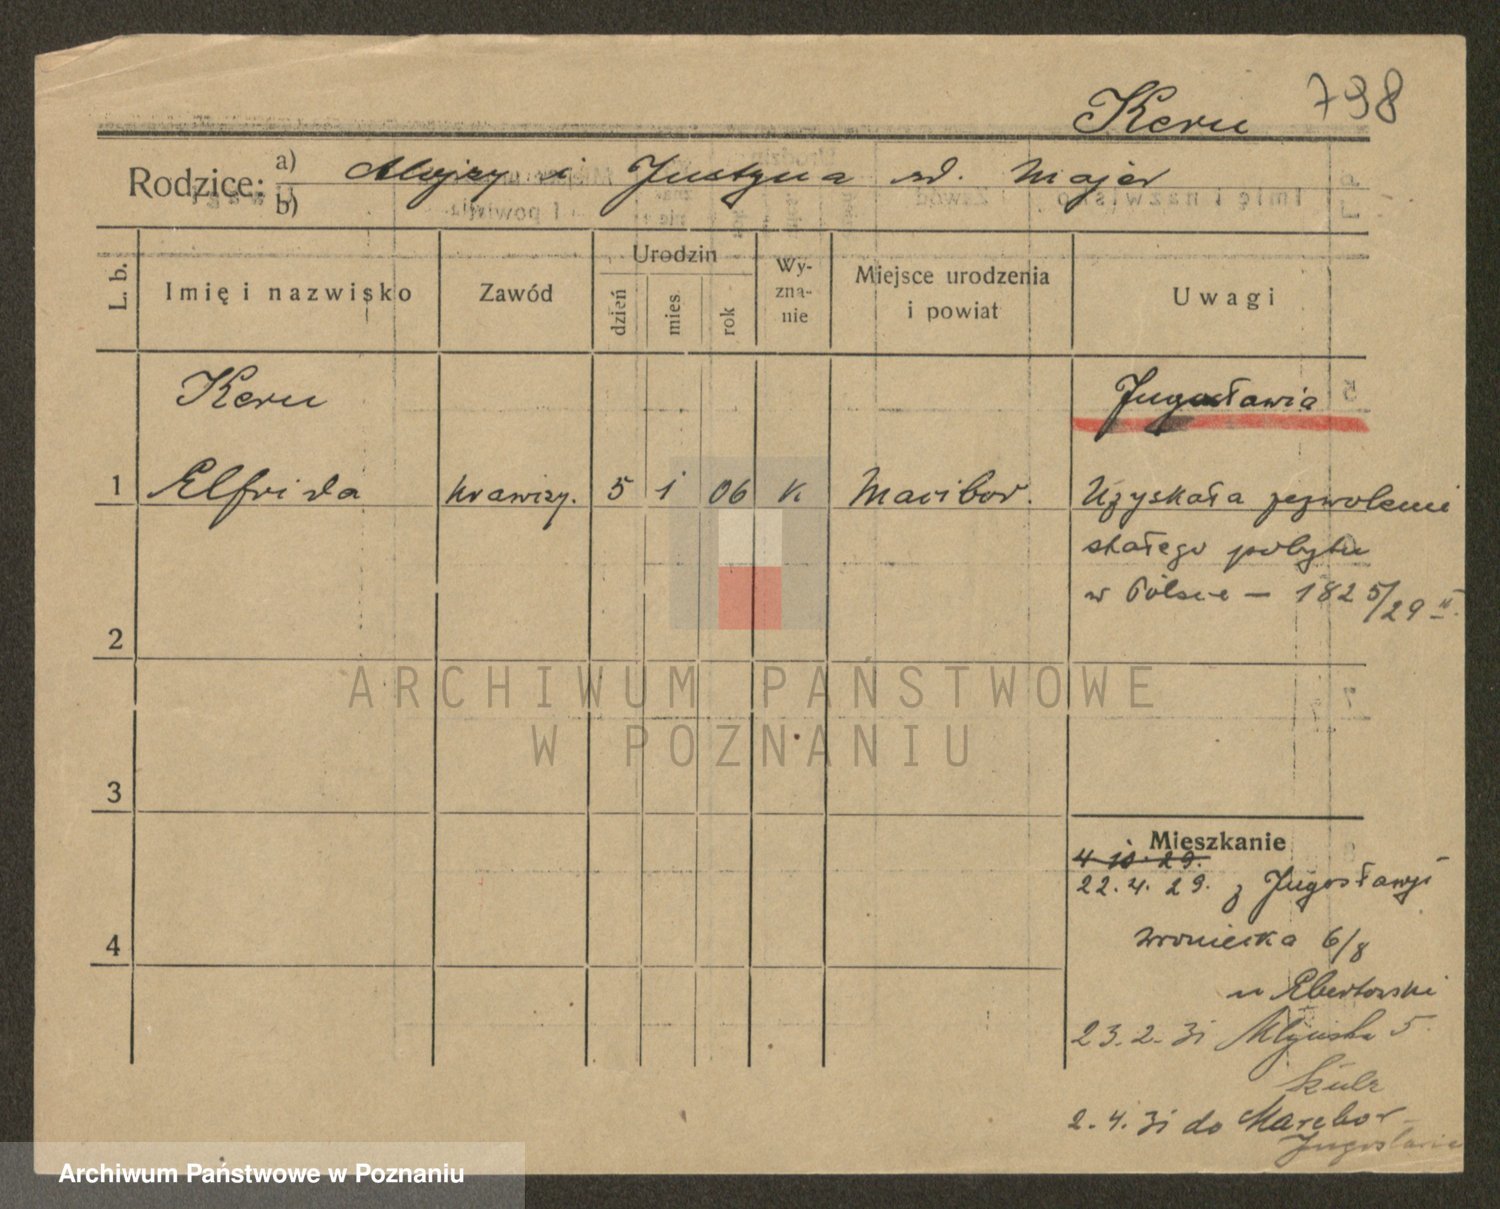 798
Keru
Rodzice: a) Alojzy i Justyna ur. Majer
b)
L. b.
Imię i nazwisko
Zawód
Urodzin
dzień
mies.
rok
Wy-
zna-
nie
Miejsce urodzenia
i powiat
Uwagi
Keru
Jugosławia
1 Elfrida krawczy. 5 1 06 k Maribor. Uzyskała pozwolenie
stałego pobytu
w Polsce — 1825/29 II.
2
3
4
Mieszkanie
4 10. 29.
22. 4. 29. z Jugosławji
Wroniecka 6/8
u Ebertowski
23. 2. 31 Młyńska 5.
2. 4. 31 do Marebor
Jugosławia
ARCHIWUM PAŃSTWOWE
W POZNANIU
Archiwum Państwowe w Poznaniu